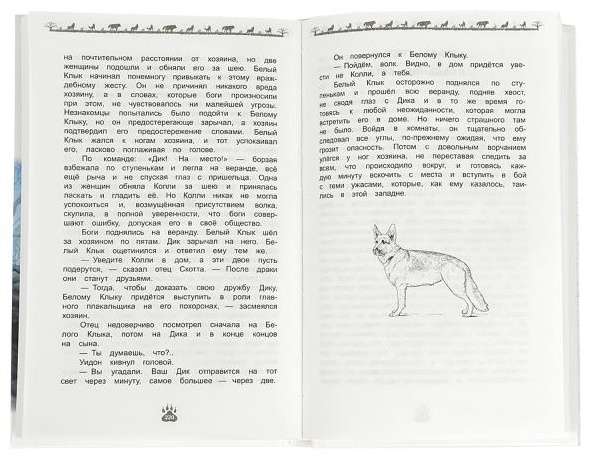 на почтительном расстоянии от хозяина, но две
женщины подошли и обняли его за шею. Белый
Клык начинал понемногу привыкать к этому враж-
дебному жесту. Он не причинял никакого вреда
хозяину, а в словах, которые боги произносили
при этом, не чувствовалось ни малейшей угрозы.
Незнакомцы попытались было подойти к Белому
Клыку, но он предостерегающе зарычал, а хозяин
подтвердил его предостережение словами. Белый
Клык жался к ногам хозяина, и тот успокаивал
его, ласково поглаживая по голове.
По команде: «Дик! На место!» — борзая
взбежала по ступенькам и легла на веранде, всё
ещё рыча и не спуская глаз с пришельца. Одна
из женщин обняла Колли за шею и принялась
ласкать и гладить её. Но Колли никак не могла
успокоиться и, возмущённая присутствием волка,
скулила, в полной уверенности, что боги совер-
шают ошибку, допуская его в своё общество.
Боги поднялись на веранду. Белый Клык шёл
за хозяином по пятам. Дик зарычал на него. Бе-
лый Клык ощетинился и ответил ему тем же.
— Уведите Колли в дом, а эти двое пусть
подерутся, — сказал отец Скотта. — После драки
они станут друзьями.
— Тогда, чтобы доказать свою дружбу Дику,
Белому Клыку придётся выступить в роли глав-
ного плакальщика на его похоронах, — засмеялся
хозяин.
Отец недоверчиво посмотрел сначала на Бе-
лого Клыка, потом на Дика и в конце концов
на сына.
— Ты думаешь, что?..
Уидон кивнул головой.
— Вы угадали. Ваш Дик отправится на тот
свет через минуту, самое большее — через две.
Он повернулся к Белому Клыку.
— Пойдём, волк. Видно, в дом придётся уве-
сти не Колли, а тебя.
Белый Клык осторожно поднялся по сту-
пенькам и прошёл всю веранду, подняв хвост,
не сводя глаз с Дика и в то же время го-
товясь к любой неожиданности, которая могла
встретить его в доме. Но ничего страшного там
не было. Войдя в комнаты, он тщательно об-
следовал все углы, по-прежнему ожидая, что ему
грозит опасность. Потом с довольным ворчанием
улёгся у ног хозяина, не переставая следить за
всем, что происходило вокруг, и готовясь каж-
дую минуту вскочить с места и вступить в бой
с теми ужасами, которые, как ему казалось, таи-
лись в этой западне.